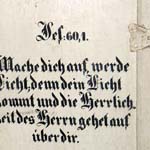 Jes: 60, 1.
Mache dich auf, werde
Licht, denn dein Licht
kommt und die Herrlich
keit des Herrn gehet auf
über dir.